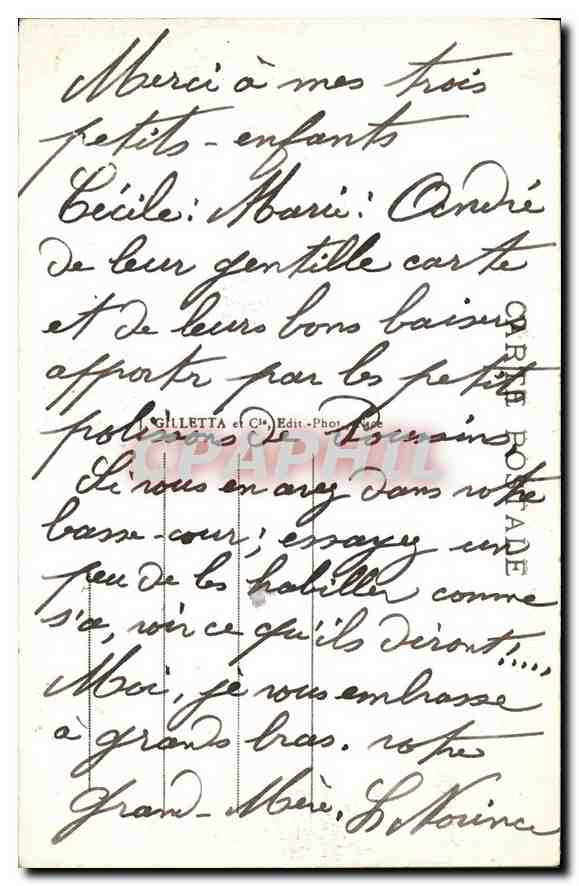 Merci à mes trois
petits-enfants
Cécile: Marie: André
de leur gentille carte
et de leurs bons baisers
apporter par les petits
polissons de Poussins.
Si vous en avez dans votre
basse-cour; essayez un
peu de les habiller comme
s'a, voir ce qu'ils diront!....
Moi, je vous embrasse
à grands bras. votre
grand-Mère,
CARTE POSTALE
GILLETTA et Cie, Edit.-Phot., Nice
CPAPHIL